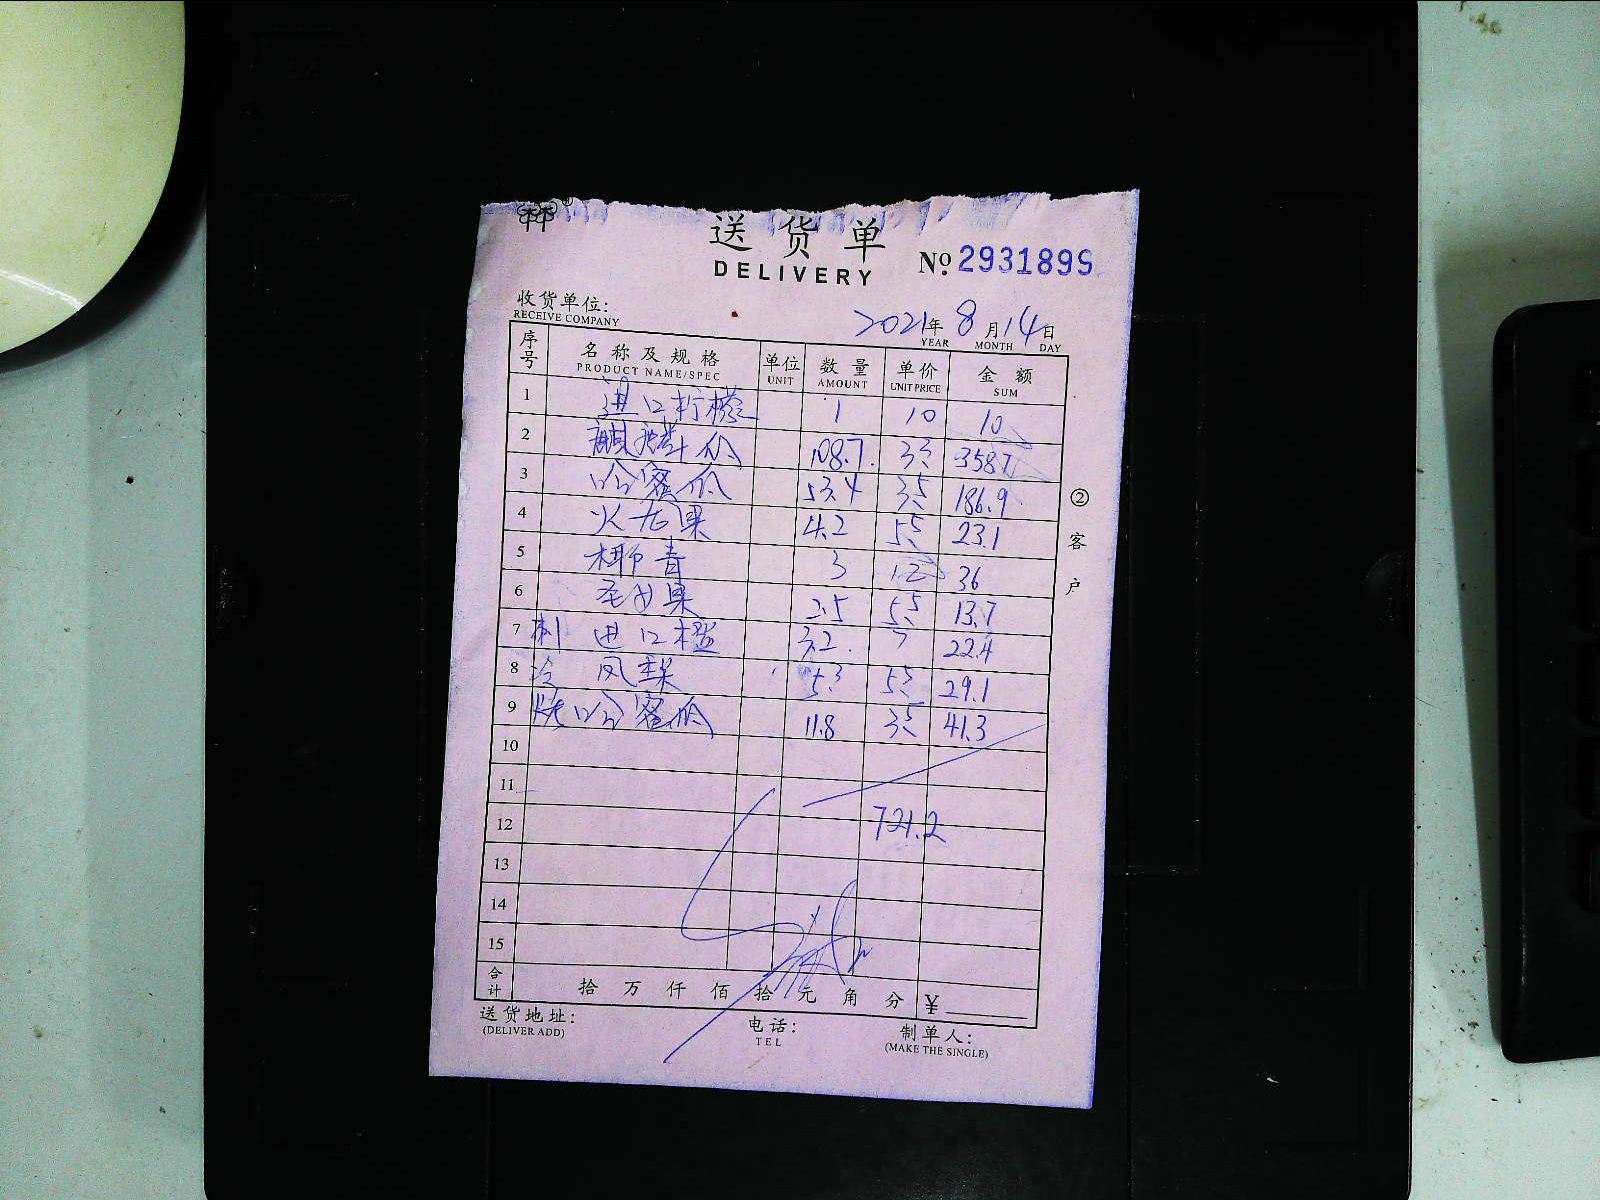 送货单
DELIVERY
№ 2931899
收货单位:
RECEIVE COMPANY
2021年 8月 14日
YEAR MONTH DAY
序号 名称及规格 单位 数量 单价 金额
PRODUCT NAME/SPEC UNIT AMOUNT UNIT PRICE SUM
1 进口柠檬 1 10 10
2 麒麟瓜 108.7 3.3 358.7
3 哈密瓜 53.4 3.5 186.9
4 火龙果 4.2 5.5 23.1
5 椰青 3 12 36
6 圣女果 2.5 5.5 13.7
7 进口橙 3.2 7 22.4
8 冷 凤梨 5.3 5.5 29.1
9 烧 哈密瓜 11.8 3.5 41.3
10
11
12 721.2
13
14
15
合计 拾 万 仟 佰 拾 元 角 分 ¥
送货地址: 电话: 制单人:
(DELIVER ADD) TEL (MAKE THE SINGLE)
②客户